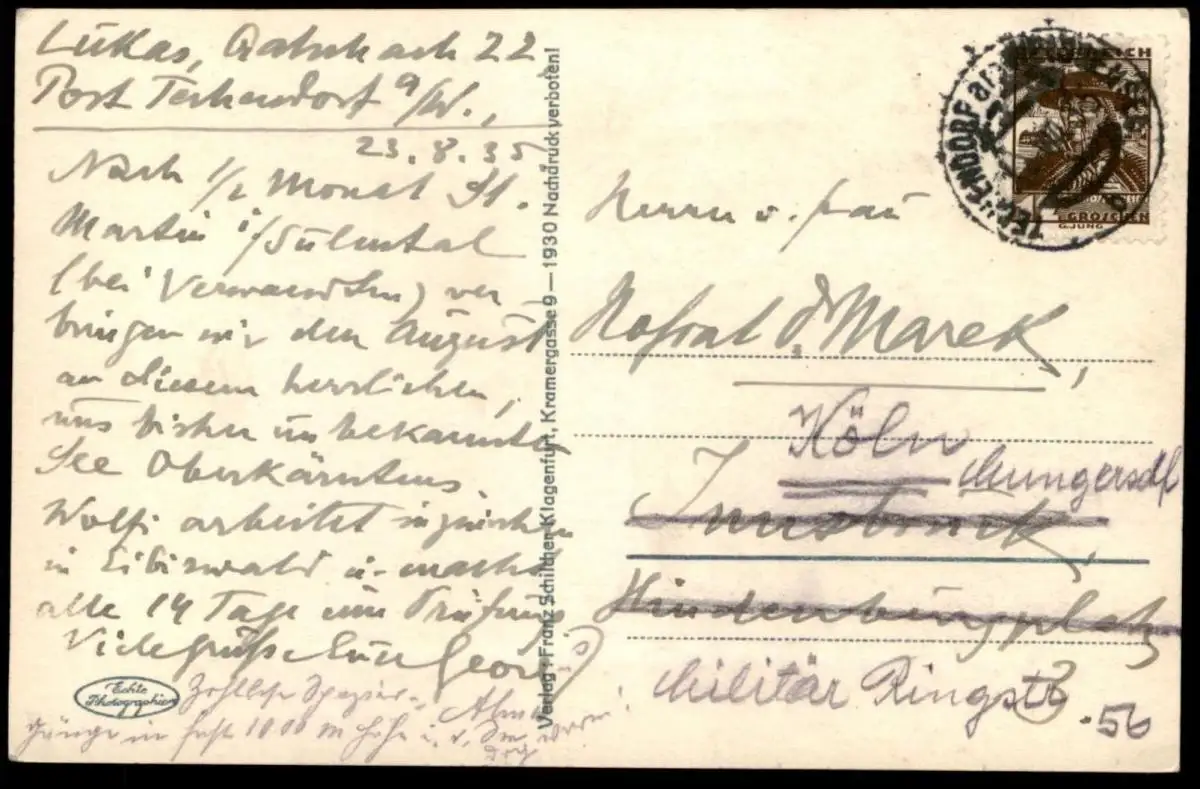 Lukas, Gatschach 22
Post Techendorf a/W.,
23.8.35
Nach 1/2 Monat St.
Martin i/Sulmtal
(bei Verwandten) ver
bringen wir den August
an diesem herrlichen,
uns bisher unbekannten
See Oberkärntens.
Wolfi arbeitet inzwischen
in Eibiswald u. macht
alle 14 Tage eine Prüfung
Viele Grüße Euer Georg
Echte
Photographien
Spazier-
gänge in fast 1000 m Höhe
Verlag: Franz Schilcher, Klagenfurt, Kramergasse 9 — 1930 Nachdruck verboten!
ÖSTERREICH
TECHENDORF
GROSCHEN
G. JUNG
Herrn u. Frau
Hofrat Dr Marek,
Köln
Mungersdf
Innsbruck,
Hindenburgplatz
Militär Ringstr
56